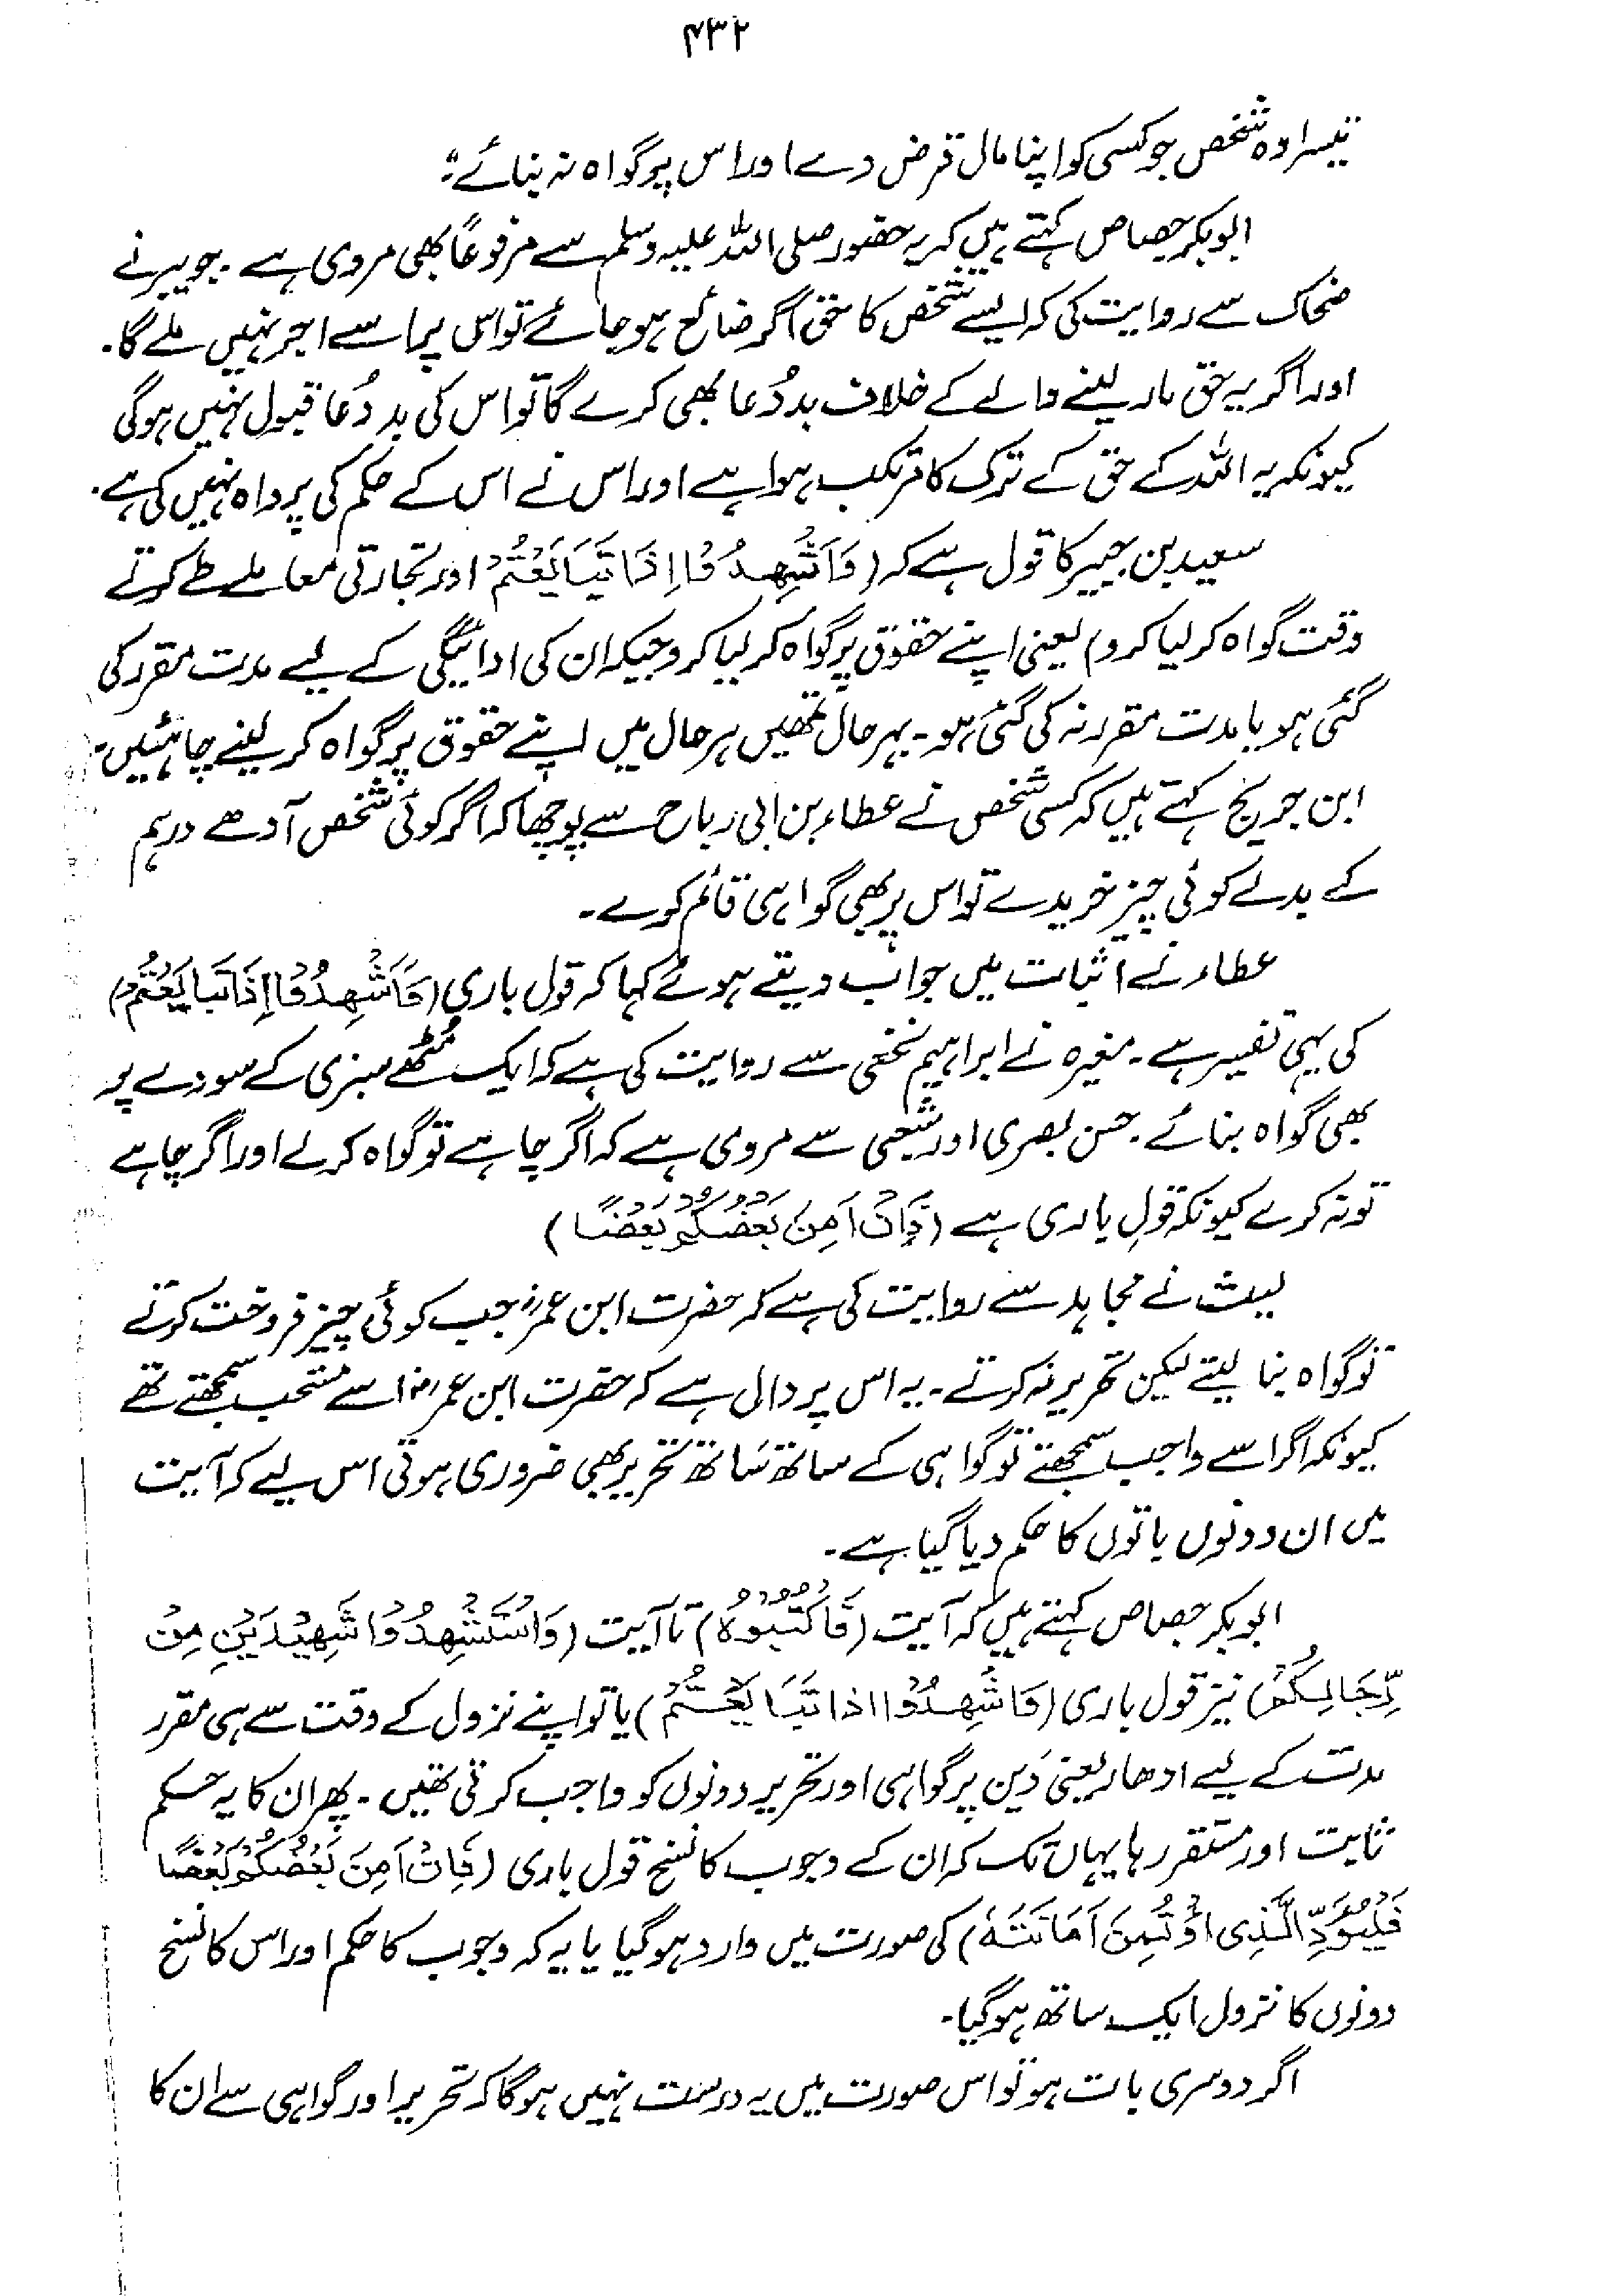 ۴۳۲
تیسرا وہ شخص جو کسی کو اپنا مال قرض دے اور اس پر گواہ نہ بنائے ۔"
ابوبکر جصاص کہتے ہیں کہ یہ حضور صلی اللہ علیہ وسلم سے مرفوعاً بھی مروی ہے ۔ جویبر نے
ضحاک سے روایت کی کہ ایسے شخص کا حق اگر ضائع ہو جائے تو اس پر اسے اجر نہیں ملے گا۔
اور اگر یہ حق مار لینے والے کے خلاف بددُعا بھی کرے گا تو اس کی بددُعا قبول نہیں ہوگی
کیونکہ یہ اللہ کے حق کے ترک کا مرتکب ہوا ہے اور اس نے اس کے حکم کی پرواہ نہیں کی ہے۔
سعید بن جبیر کا قول ہے کہ (وَاَشْهِدُوْا اِذَا تَبَايَعْتُمْ اور تجارتی معاملے طے کرتے
وقت گواہ کر لیا کرو) یعنی اپنے حقوق پر گواہ کر لیا کرو جبکہ ان کی ادائیگی کے لیے مدت مقرر کی
گئی ہو یا مدت مقرر نہ کی گئی ہو۔ بہرحال تمھیں ہر حال میں اپنے حقوق پر گواہ کر لینے چاہئیں۔
ابن جریج کہتے ہیں کہ کسی شخص نے عطاء بن ابی رباح سے پوچھا کہ اگر کوئی شخص آدھے درہم
کے بدلے کوئی چیز خریدے تو اس پر بھی گواہی قائم کرے ۔
عطاء نے اثبات میں جواب دیتے ہوئے کہا کہ قول باری (وَاَشْهِدُوْا اِذَا تَبَايَعْتُمْ)
کی یہی تفسیر ہے۔ مغیرہ نے ابراہیم نخعی سے روایت کی ہے کہ ایک مُٹھے سبزی کے سودے پر
بھی گواہ بنائے ۔ حسن بصری اور شعبی سے مروی ہے کہ اگر چاہے تو گواہ کرلے اور اگر چاہے
تو نہ کرے کیونکہ قولِ باری ہے (فَاِنْ اَمِنَ بَعْضُكُمْ بَعْضًا)
لیث نے مجاہد سے روایت کی ہے کہ حضرت ابن عمرؓ جب کوئی چیز فروخت کرتے
تو گواہ بنا لیتے لیکن تحریر نہ کرتے ۔ یہ اس پر دال ہے کہ حضرت ابن عمرؓ اسے مستحب سمجھتے تھے
کیونکہ اگر اسے واجب سمجھتے تو گواہی کے ساتھ ساتھ تحریر بھی ضروری ہوتی اس لیے کہ آیت
میں ان دونوں باتوں کا حکم دیا گیا ہے ۔
ابوبکر جصاص کہتے ہیں کہ آیت (فَاكْتُبُوْهُ) تا آیت (وَاسْتَشْهِدُوْا شَهِيْدَيْنِ مِنْ
رِّجَالِكُمْ) نیز قول باری (وَاَشْهِدُوْا اذا تَبَايَعْتُمْ) یا تو اپنے نزول کے وقت سے ہی مقرر
مدت کے لیے ادھار یعنی دَین پر گواہی اور تحریر دونوں کو واجب کرتی تھیں ۔ پھر ان کا یہ حکم
ثابت اور مستقر رہا یہاں تک کہ ان کے وجوب کا نسخ قول باری (فَاِنْ اَمِنَ بَعْضُكُمْ بَعْضًا
فَلْيُؤَدِّ الَّذِى اؤْتُمِنَ اَمَانَتَهٗ) کی صورت میں وارد ہوگیا یا یہ کہ وجوب کا حکم اور اس کا نسخ
دونوں کا نزول ایک ساتھ ہوگیا۔
اگر دوسری بات ہو تو اس صورت میں یہ درست نہیں ہوگا کہ تحریر اور گواہی سے ان کا